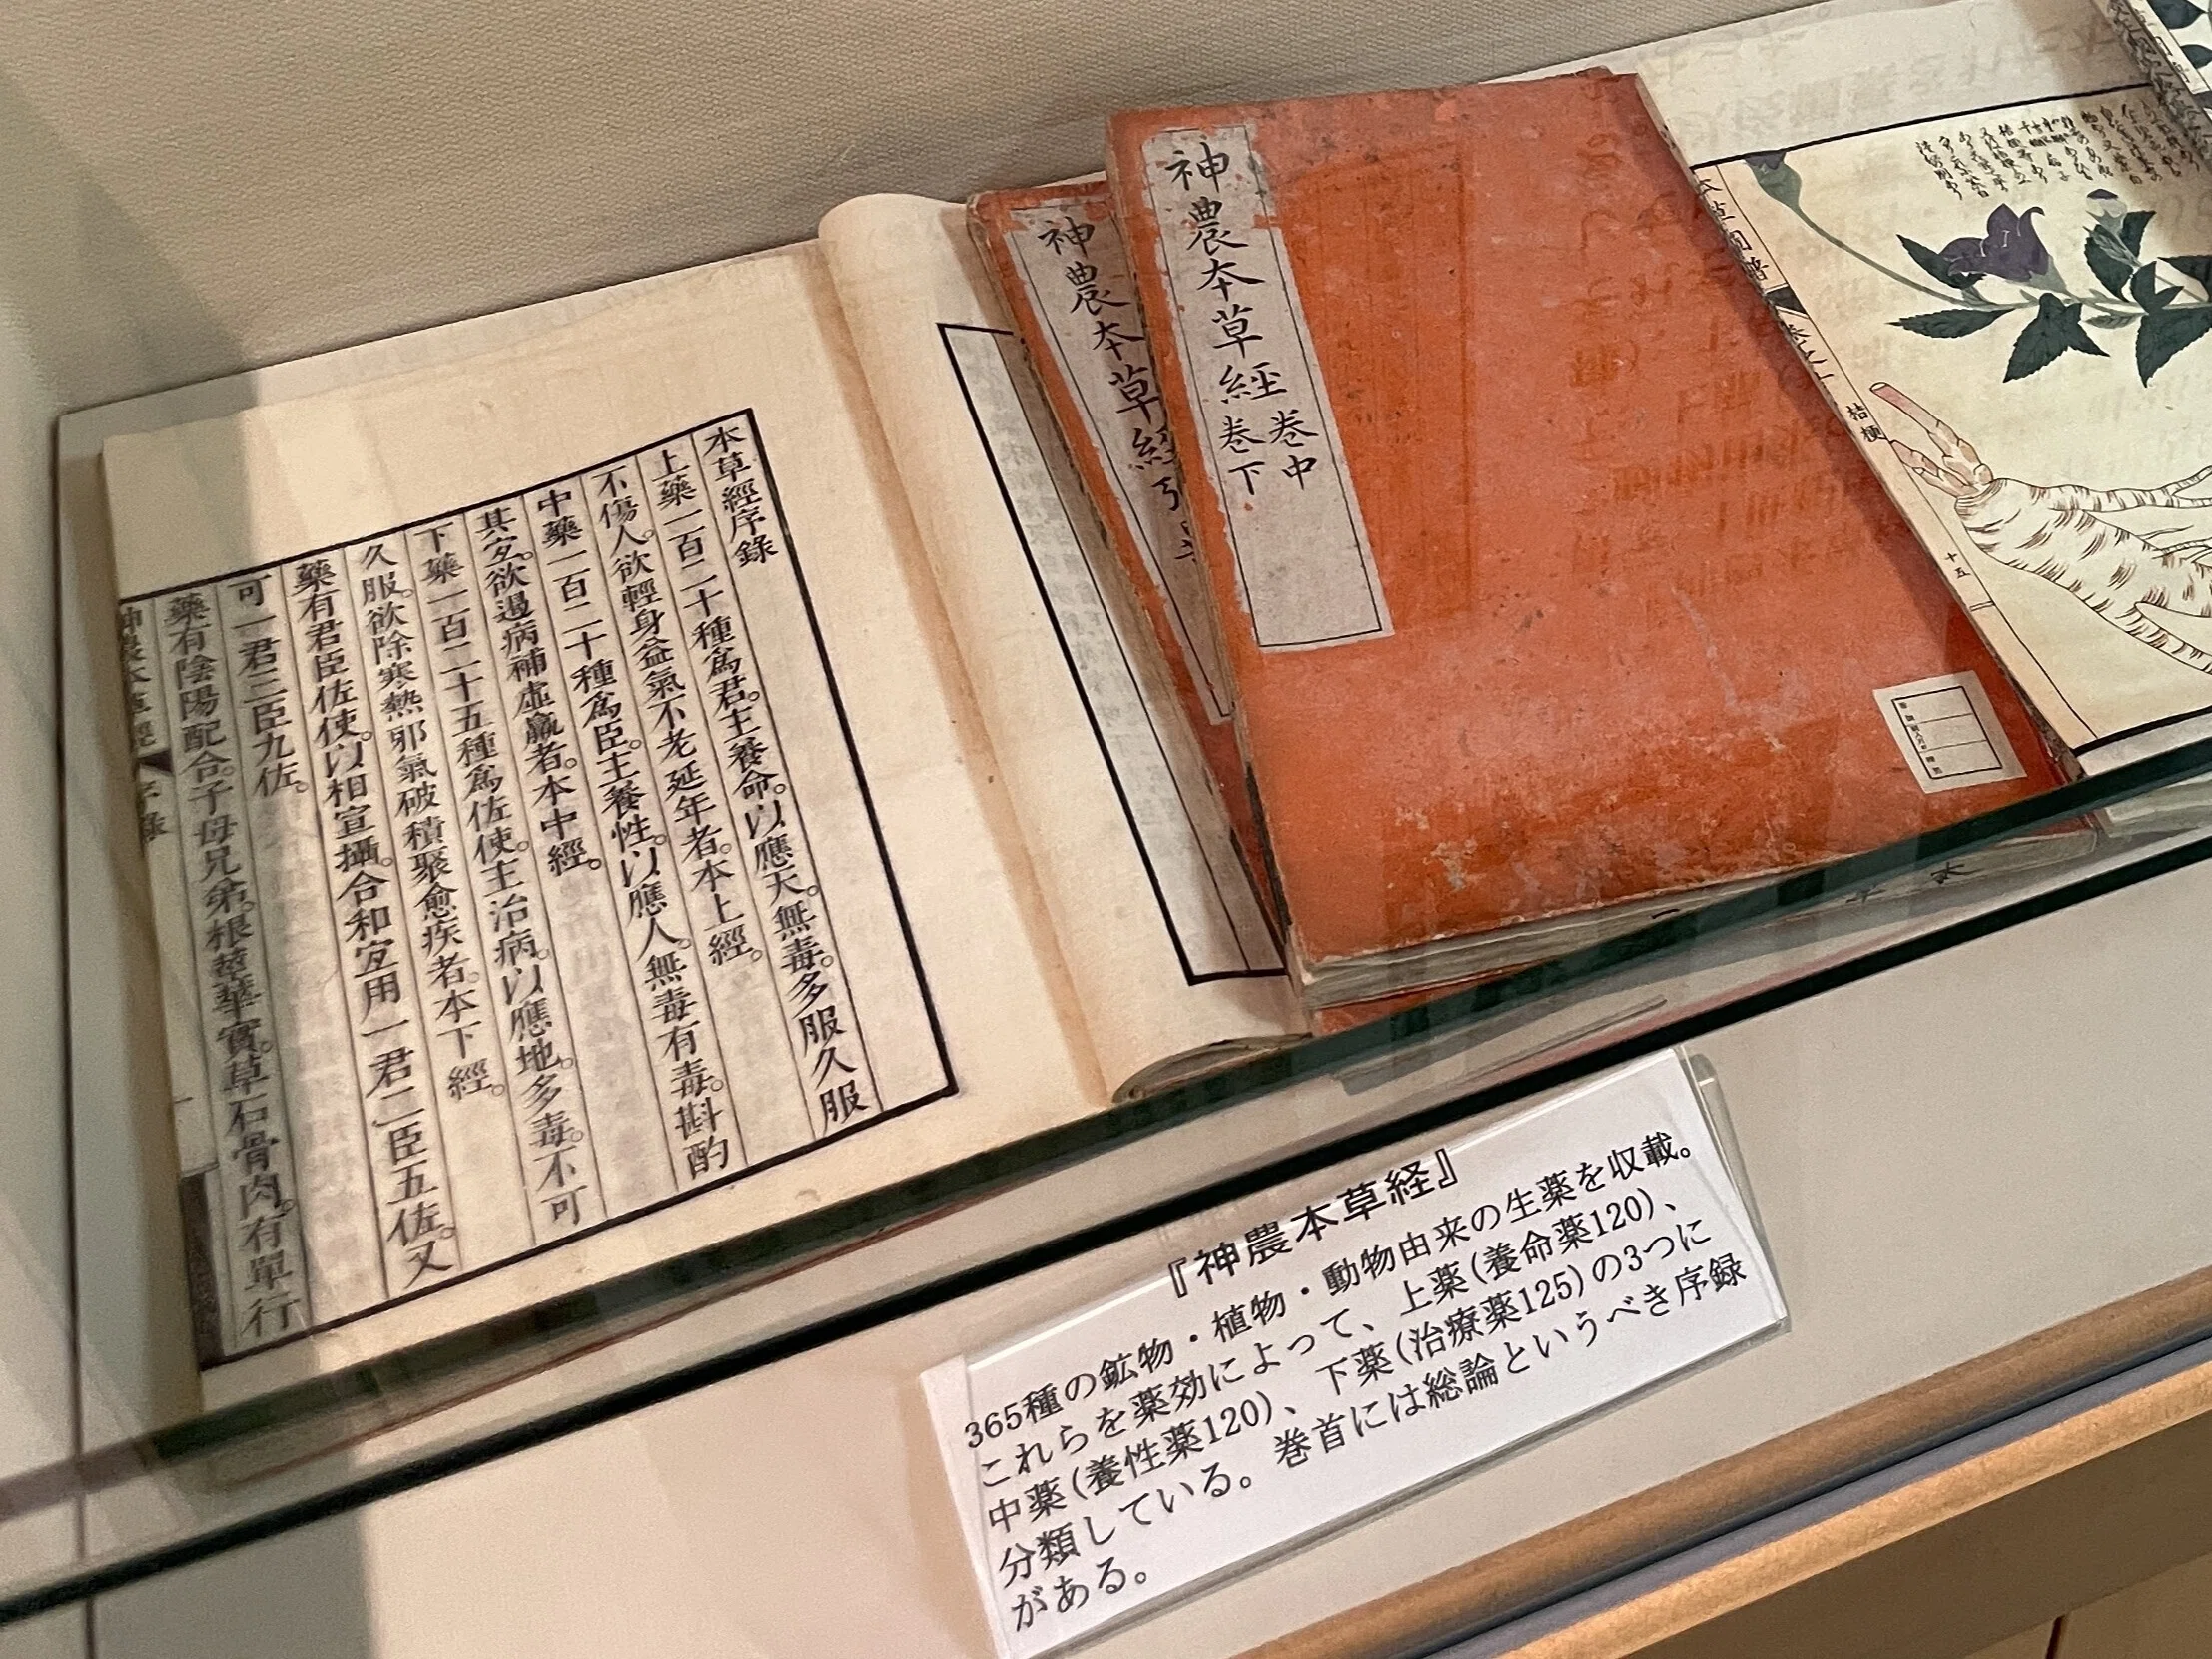 本草經序錄
上藥一百二十種爲君。主養命。以應天。無毒。多服久服
不傷人。欲輕身益氣不老延年者。本上經。
中藥一百二十種爲臣。主養性。以應人。無毒有毒。斟酌
其宐。欲遏病補虛羸者。本中經。
下藥一百二十五種爲佐使。主治病。以應地。多毒。不可
久服。欲除寒熱邪氣破積聚愈疾者。本下經。
藥有君臣佐使。以相宣攝。合和宐用一君二臣五佐。又
可一君三臣九佐。
藥有陰陽配合。子母兄弟。根莖華實。草石骨肉。有單行
神農本草經
序錄
神農本草經
神農本草經 巻中
巻下
桔梗
十五
『神農本草経』
365種の鉱物・植物・動物由来の生薬を収載。
これらを薬効によって、上薬(養命薬120)、
中薬(養性薬120)、下薬(治療薬125)の3つに
分類している。巻首には総論というべき序録
がある。